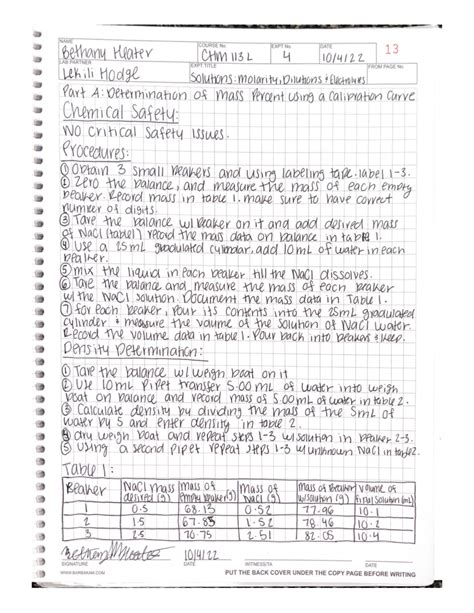 NAME
Bethany Heater
COURSE No.
CHM 113L
EXP No.
4
DATE
10/4/22
13
LAB PARTNER
Lekili Hodge
EXPT TITLE
Solutions: Molarity, Dilutions & Electrolytes
FROM PAGE No.
Part A: Determination of Mass Percent using a Calibration Curve
Chemical Safety:
NO Critical Safety Issues.
Procedures:
① Obtain 3 small beakers and using labeling tape label 1-3.
② Zero the balance, and measure the mass of each empty
beaker. Record mass in table 1. make sure to have correct
number of digits.
③ Tare the balance w/ beaker on it and add desired mass
of NaCl (table 1) record the mass data on balance in table 1.
④ Use a 25mL graduated cylinder, add 10mL of water in each
beaker.
⑤ mix the liquid in each beaker till the NaCl dissolves.
⑥ Tare the balance and measure the mass of each beaker
w/ the NaCl solution. Document the mass data in Table 1.
⑦ for each beaker, pour its contents into the 25mL graduated
cylinder & measure the volume of the solution of NaCl water.
Record the volume data in table 1. Pour back into beakers & keep.
Density Determination:
① Tare the balance w/ weigh boat on it
② Use 10mL Pipet transfer 5.00mL of water into weigh
boat on balance and record mass of 5.00mL of water in table 2.
③ Calculate density by dividing the mass of the 5mL of
water by 5 and enter density in table 2.
④ dry weigh boat and repeat steps 1-3 w/ solution in beaker 2-3.
⑤ Using a second pipet repeat steps 1-3 w/ unknown NaCl in table 2.
Table 1:
Beaker NaCl mass desired (g) mass of empty beaker (g) Mass of NaCl (g) Mass of Beaker w/ solution (g) Volume of final solution (mL)
1 0.5 68.13 0.52 77.96 10.1
2 1.5 67.83 1.52 78.46 10.2
3 2.5 70.75 2.51 82.05 10.4
Bethany Heater 10/4/22
SIGNATURE DATE WITNESS/TA DATE
WWW.BARBAKAM.COM PUT THE BACK COVER UNDER THE COPY PAGE BEFORE WRITING